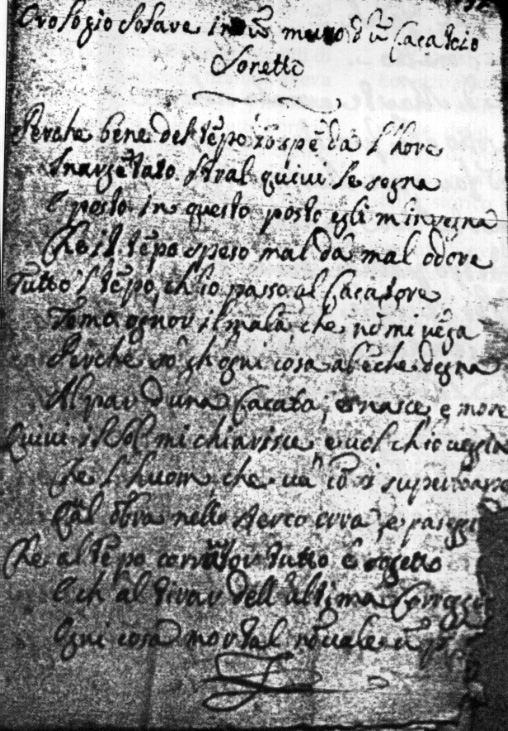 Orologio Solare in un muro d'un Cacatoio
Sonetto
Perche bene del tẽpo nõ spẽda l'hore
Inargẽtato stral quivi le segna
E posto in questo posto egli m'insegna
Che il tẽpo speso mal dà mal odore
Tutto 'l tẽpo, ch'io passo al Cacatore
Temo ognor il mala, che nõ mi vẽga
Perche sò ch'ogni cosa alfin che degna
Al par d'una Cacata, e nasce, e more
Quivi il Sol mi chiarisce, e vol ch'io
Che l'huom che và
Qual obra nello sterco erra, e
Che al tẽpo tutto è sogetto
E ch'al tirar dell'ultima
Ogni cosa mortal nõ vale